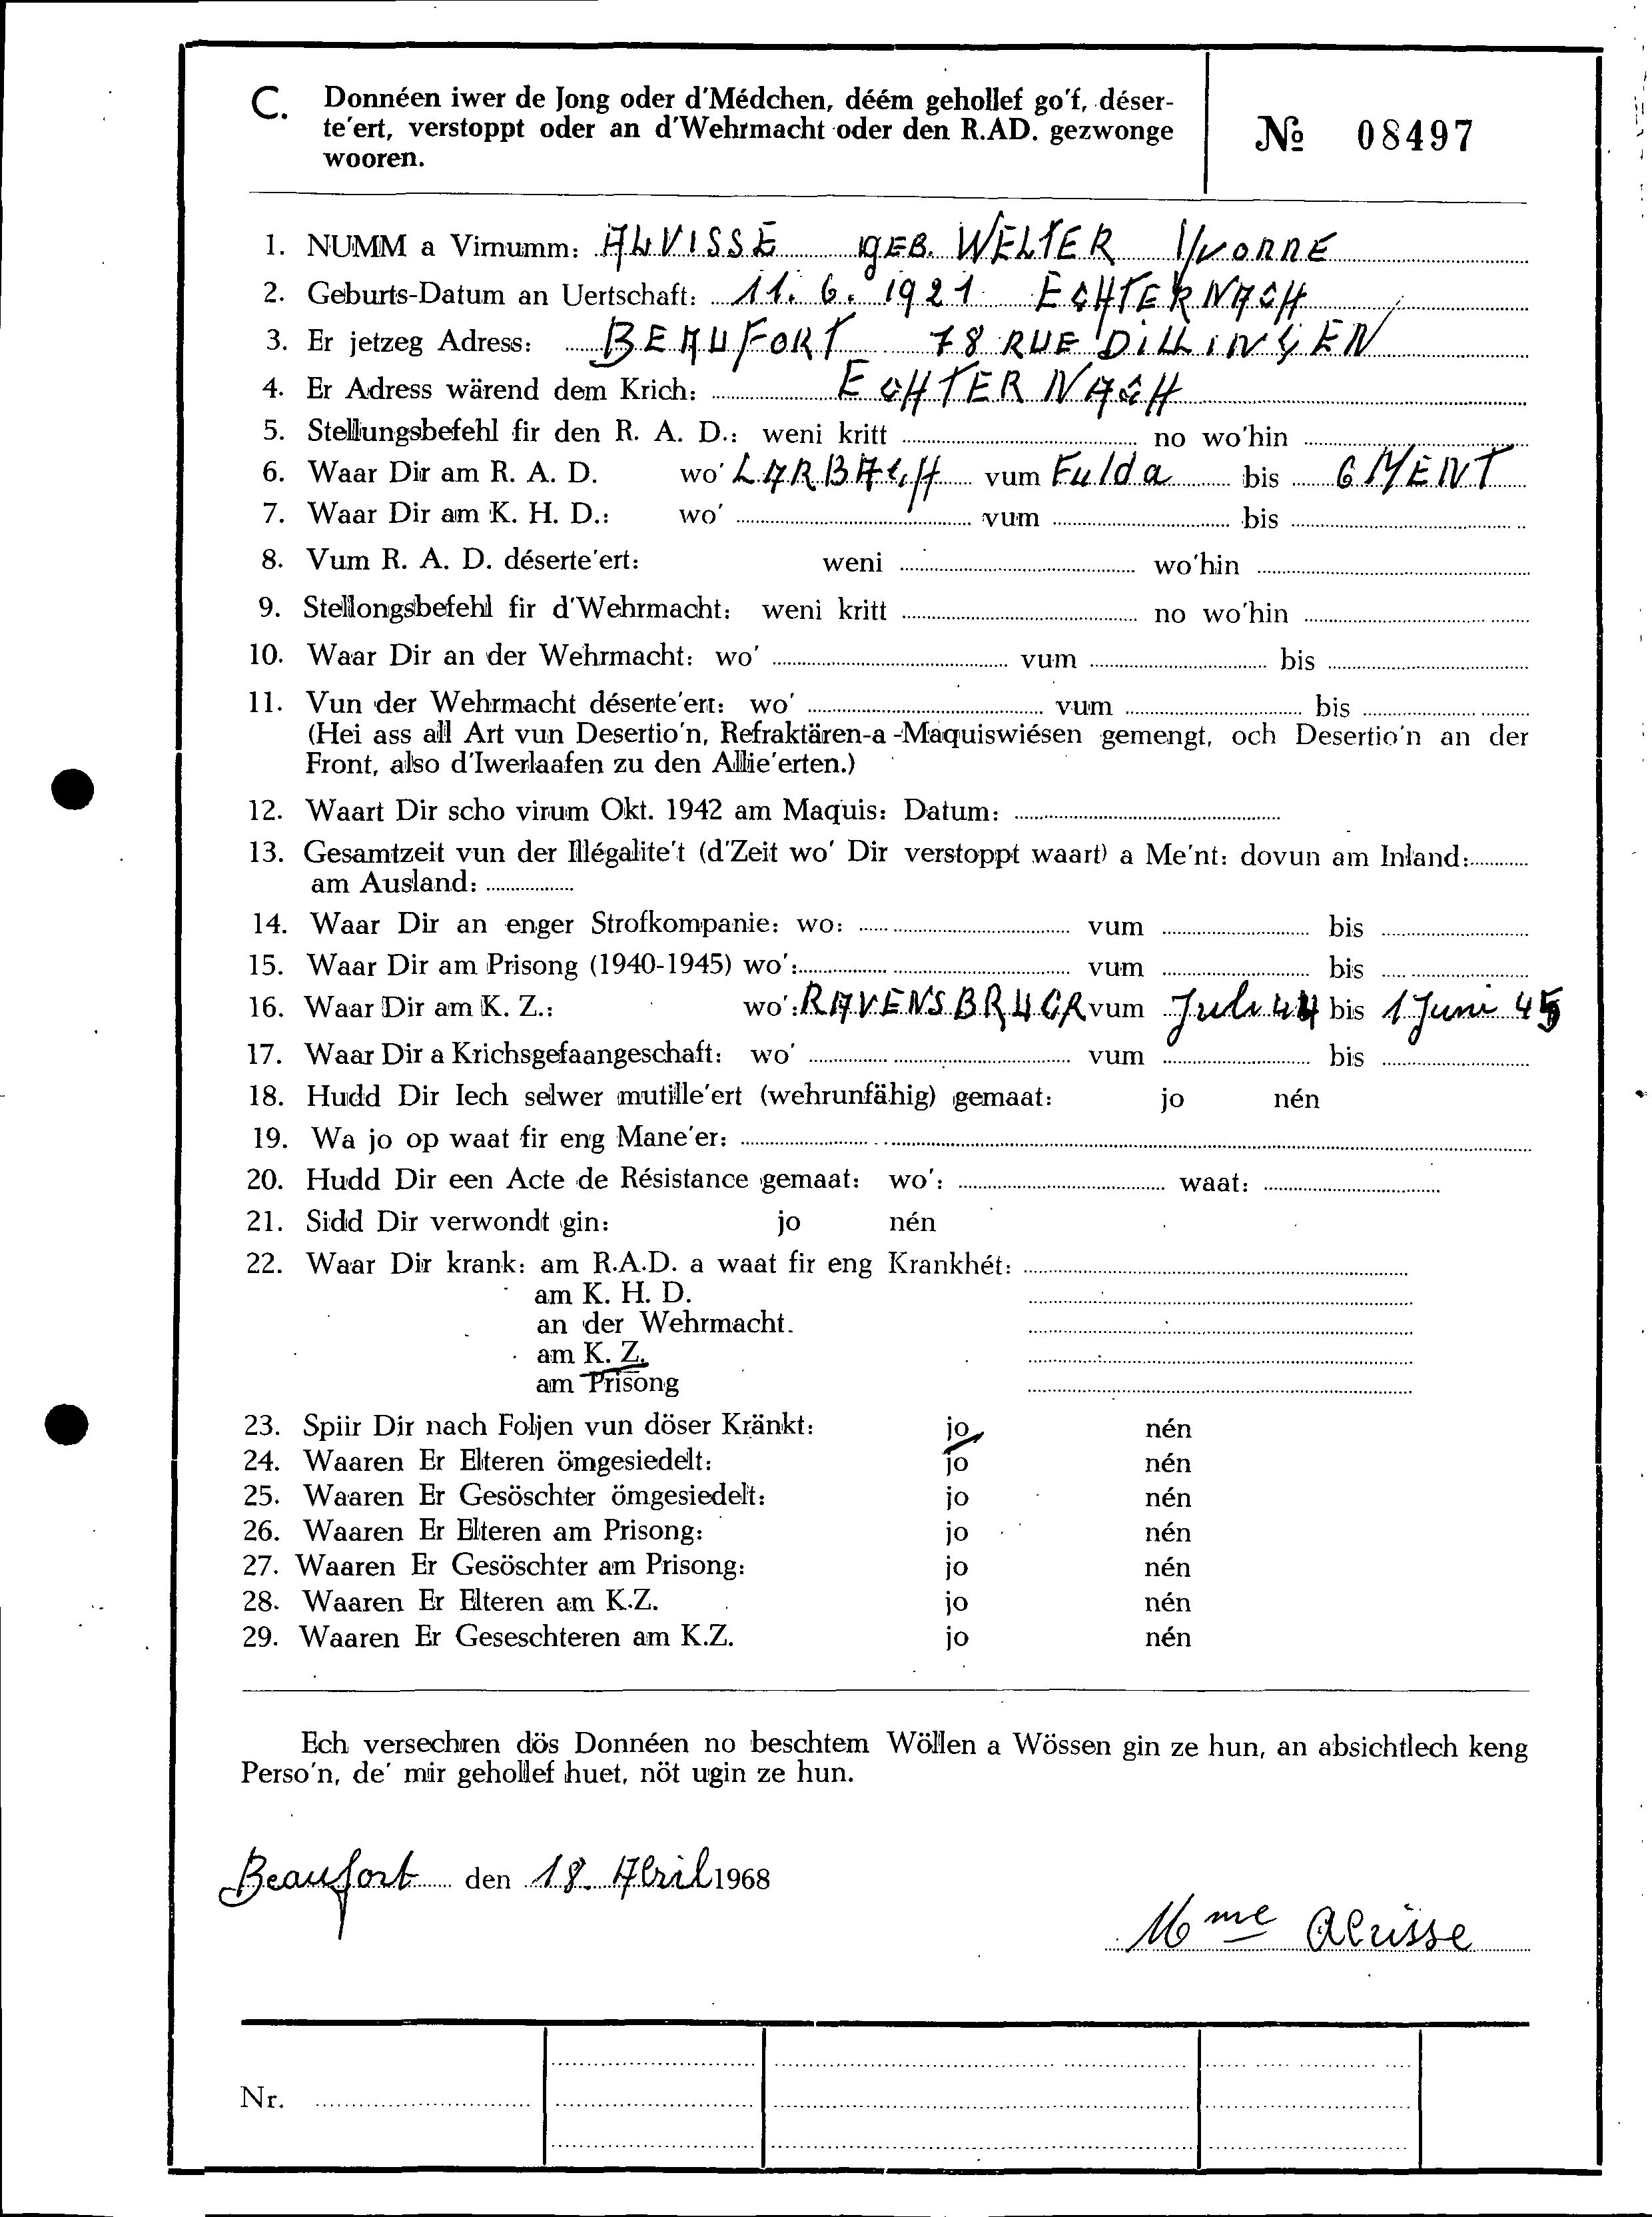 C. Donnéen iwer de Jong oder d'Médchen, déém gehollef go'f, déser-
te'ert, verstoppt oder an d'Wehrmacht oder den R.AD. gezwonge
wooren.
№ 08497
1. NUMM a Virnumm: ALVISSE GEB. WELTER YVONNE
2. Geburts-Datum an Uertschaft: 11. 6. 1921 ECHTERNACH
3. Er jetzeg Adress: BEAUFORT 78 RUE DILLINGEN
4. Er Adress wärend dem Krich: ECHTERNACH
5. Stellungsbefehl fir den R. A. D.: weni kritt no wo'hin
6. Waar Dir am R. A. D. wo' LARBACH vum Fulda bis 6 MENT
7. Waar Dir am K. H. D.: wo' vum bis
8. Vum R. A. D. déserte'ert: weni wo'hin
9. Stellongsbefehl fir d'Wehrmacht: weni kritt no wo'hin
10. Waar Dir an der Wehrmacht: wo' vum bis
11. Vun der Wehrmacht déserte'ert: wo' vum bis
(Hei ass all Art vun Desertio'n, Refraktären-a-Maquiswiésen gemengt, och Desertio'n an der
Front, also d'Iwerlaafen zu den Allie'erten.)
12. Waart Dir scho virum Okt. 1942 am Maquis: Datum:
13. Gesamtzeit vun der Illégalite't (d'Zeit wo' Dir verstoppt waart) a Me'nt: dovun am Inland:
am Ausland:
14. Waar Dir an enger Strofkompanie: wo: vum bis
15. Waar Dir am Prisong (1940-1945) wo': vum bis
16. Waar Dir am K. Z.: wo': RAVENSBRUCK vum Juli 44 bis 1 Juni 45
17. Waar Dir a Krichsgefaangeschaft: wo' vum bis
18. Hudd Dir Iech selwer mutille'ert (wehrunfähig) gemaat: jo nén
19. Wa jo op waat fir eng Mane'er:
20. Hudd Dir een Acte de Résistance gemaat: wo': waat:
21. Sidd Dir verwondt gin: jo nén
22. Waar Dir krank: am R.A.D. a waat fir eng Krankhét:
am K. H. D.
an der Wehrmacht.
am K. Z.
am Prisong
23. Spiir Dir nach Foljen vun döser Kränkt: jo nén
24. Waaren Er Elteren ömgesiedelt: jo nén
25. Waaren Er Gesöschter ömgesiedelt: jo nén
26. Waaren Er Elteren am Prisong: jo nén
27. Waaren Er Gesöschter am Prisong: jo nén
28. Waaren Er Elteren am K.Z. jo nén
29. Waaren Er Geseschteren am K.Z. jo nén
Ech versechren dös Donnéen no beschtem Wöllen a Wössen gin ze hun, an absichtlech keng
Perso'n, de' mir gehollef huet, nöt ugin ze hun.
Beaufort den 18. April 1968
Mme Alvisse
Nr.